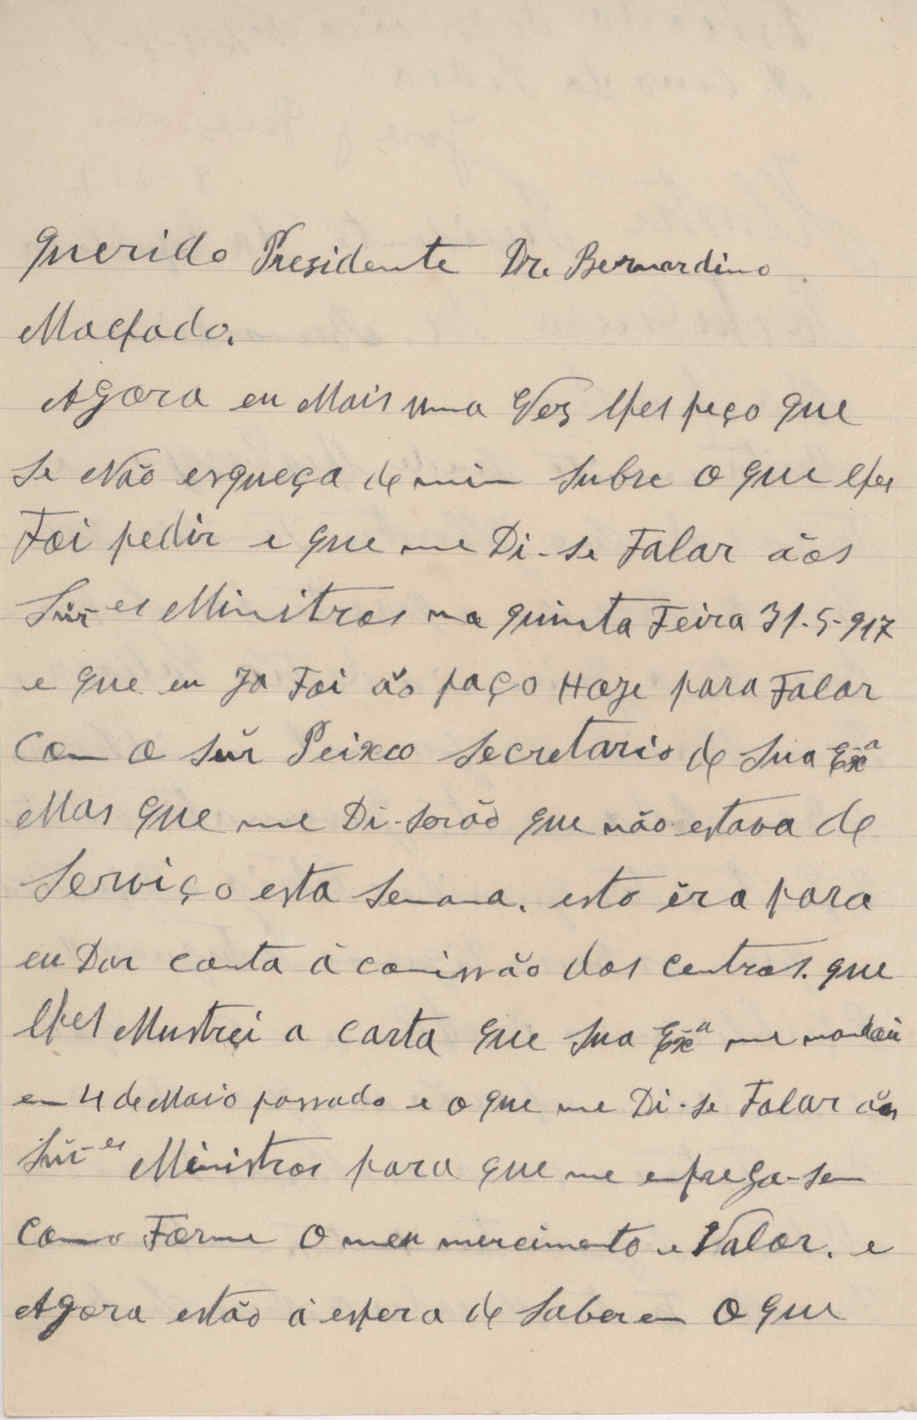 Querido Presidente Dr. Bernardino
Machado.
Agora eu Mais uma Vez lhes peço que
se Não esqueça de mim subre o que lhes
Foi pedir e que me Di-se Falar áos
Snr.es Minitros na quinta Feira 31-5-917
e que eu Ja Foi áo paço Hoje para Falar
Com o Snr Peixco Secretario de Sua Exª
Mas que me Di-serão que não estava de
Serviço esta Semana. esto éra para
eu Dar conta á comissão dos centros. que
lhes Mustrei a carta que Sua Exª me mandou
em 4 de Maio passado e o que me Di-se Falar áos
Snr.es Ministros para que me empega-sem
Como Forme o meu mercimento e Valor. e
Agora estão á espera de Saberem o que